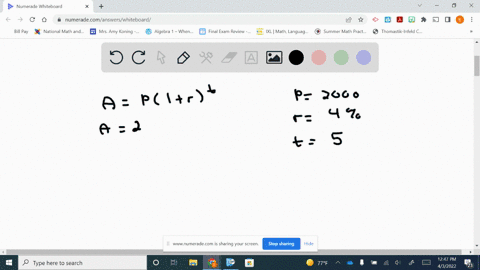 Numerade Whiteboard
numerade.com/answers/whiteboard/
Bill Pay
National Math and
Mrs. Amy Koning -
Algebra 1 - When
Final Exam Review -
IXL | Math, Languag
Summer Math Pract
Thomastik-Infeld C
A = P(1+r)^t
A = 2
P = 2000
r = 4%
t = 5
www.numerade.com is sharing your screen.
Stop sharing
Hide
Type here to search
77°F
12:47 PM
4/3/2022